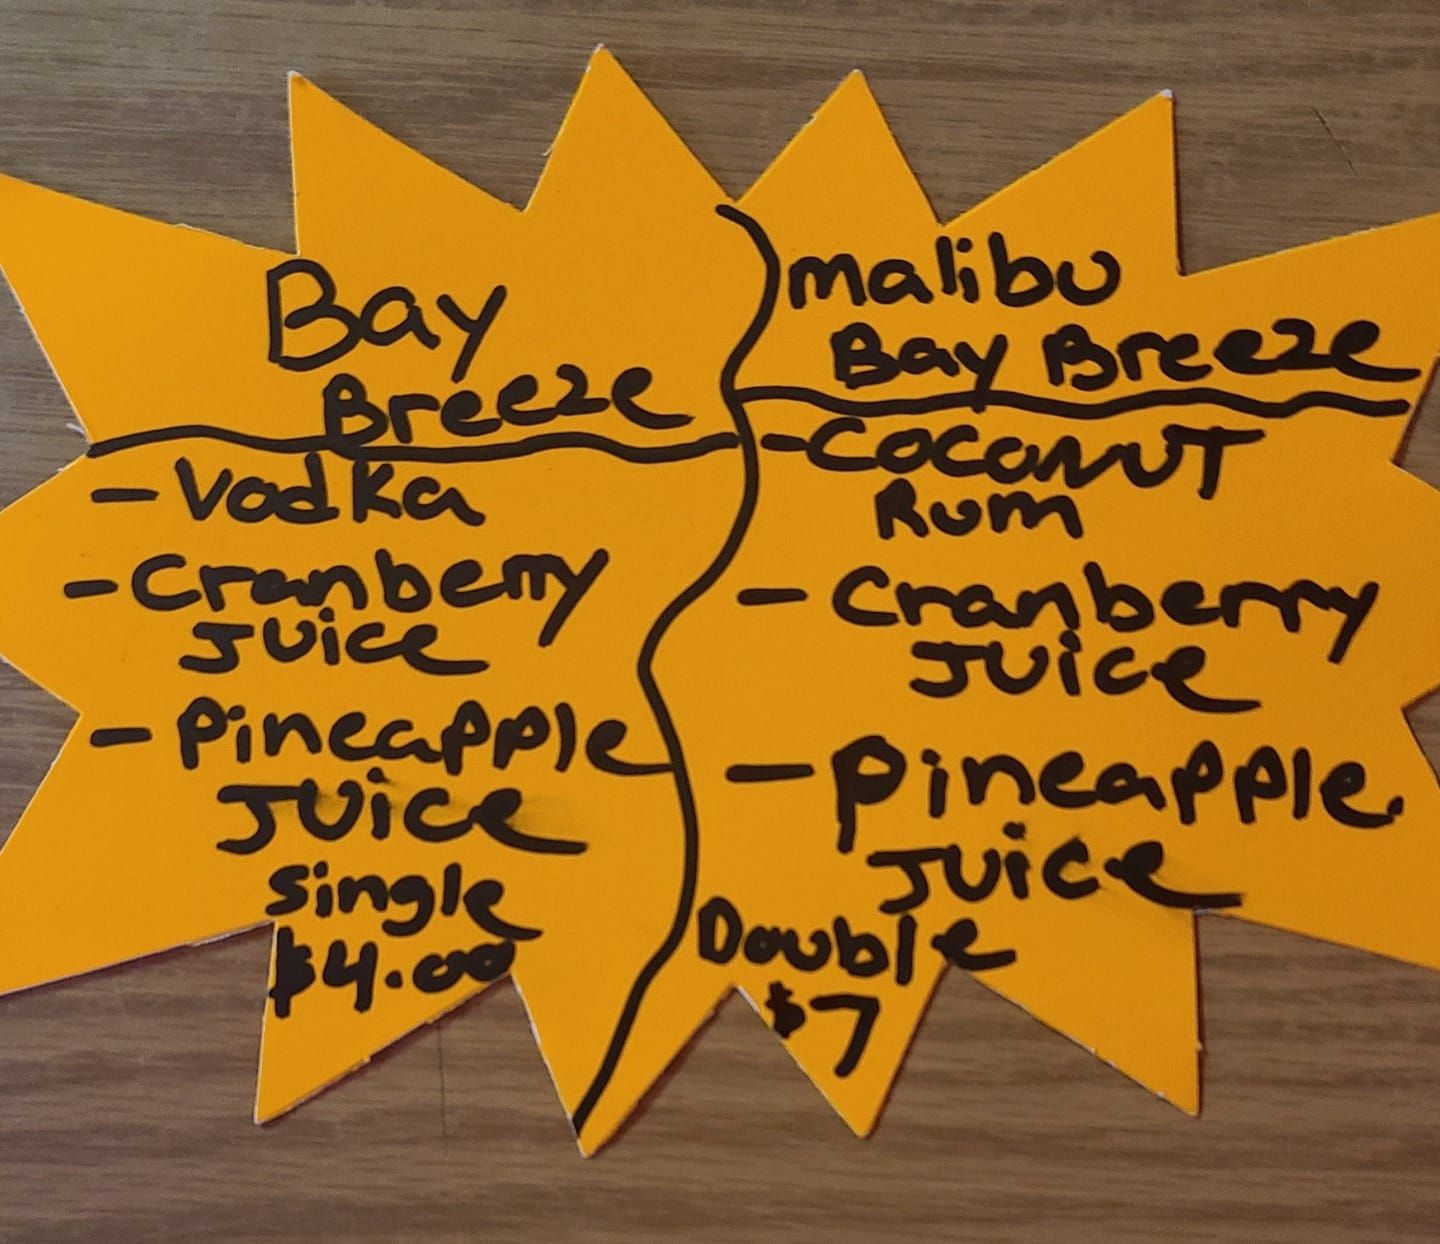 Bay
Breeze
- Vodka
- Cranberry
Juice
- Pineapple
Juice
Single
$4.00
malibu
Bay Breeze
- Coconut
Rum
- Cranberry
Juice
- Pineapple
Juice
Double
$7